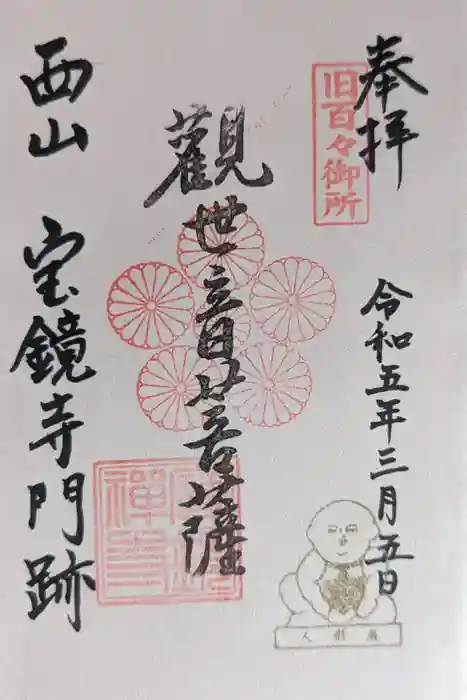 奉拝
旧百々御所
令和五年三月五日
觀世音菩薩
西山 宝鏡寺門跡
人形展